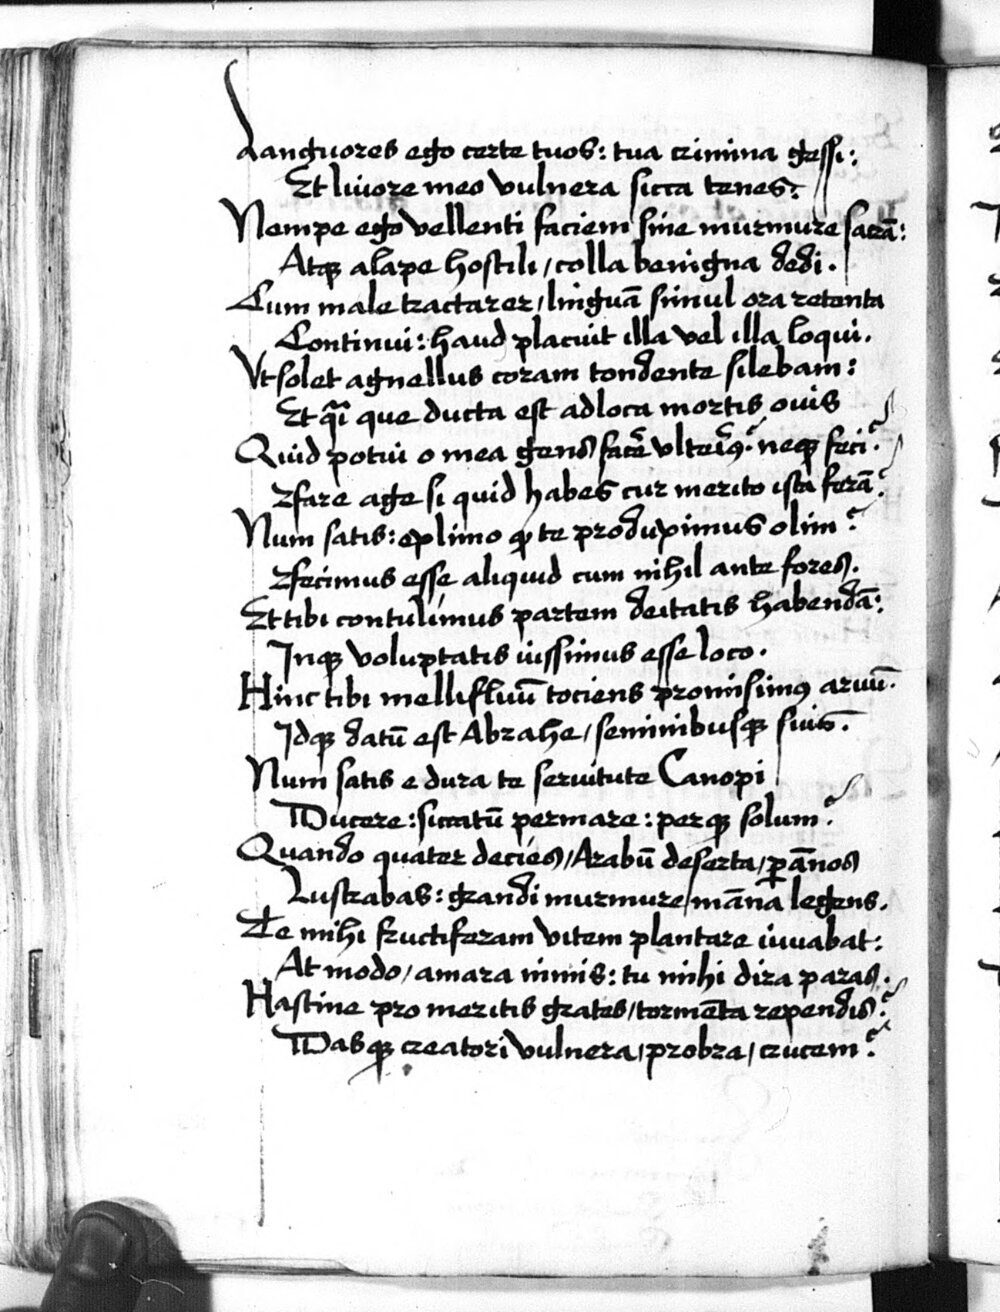 Languores ego certe tuos: tua crimina gessi:
Et liuore meo vulnera sicca tenes:
Nempe ego vellenti faciem sine murmure sacrā:
Atqꝫ alape hostili / colla benigna dedi.
Cum male tractarer / linguā simul ora retenta
Continui: haud placuit illa vel illa loqui.
Vt solet agnellus coram tondente silebam:
Et que ducta est ad loca mortis ouis
Quid potui o mea gens facē vlteriꝰ: neqꝫ feci?
Effare age si quid habes cur merito ista ferā?
Num satis: e limo ꝙ te produximus olim?
Effecimus esse aliquid cum nihil ante fores.
Et tibi contulimus partem deitatis habendā:
Inqꝫ voluptatis iussimus esse loco.
Hinc tibi mellifluū tociens promisimꝰ aruū.
Idqꝫ datū est Abrahe / seminibusqꝫ suis.
Num satis e dura te seruitute Canopi
Ducere: siccatū per mare: perqꝫ solum?
Quando quater decies / Arabū deserta / ꝑ ānos
Lustrabas: grandi murmure / māna legens.
Te mihi fructiferam vitem plantare iuuabat:
At modo / amara nimis: tu mihi dira paras.
Hastine pro meritis grates / tormēta rependis?
Dasqꝫ creatori vulnera / probra / crucem?